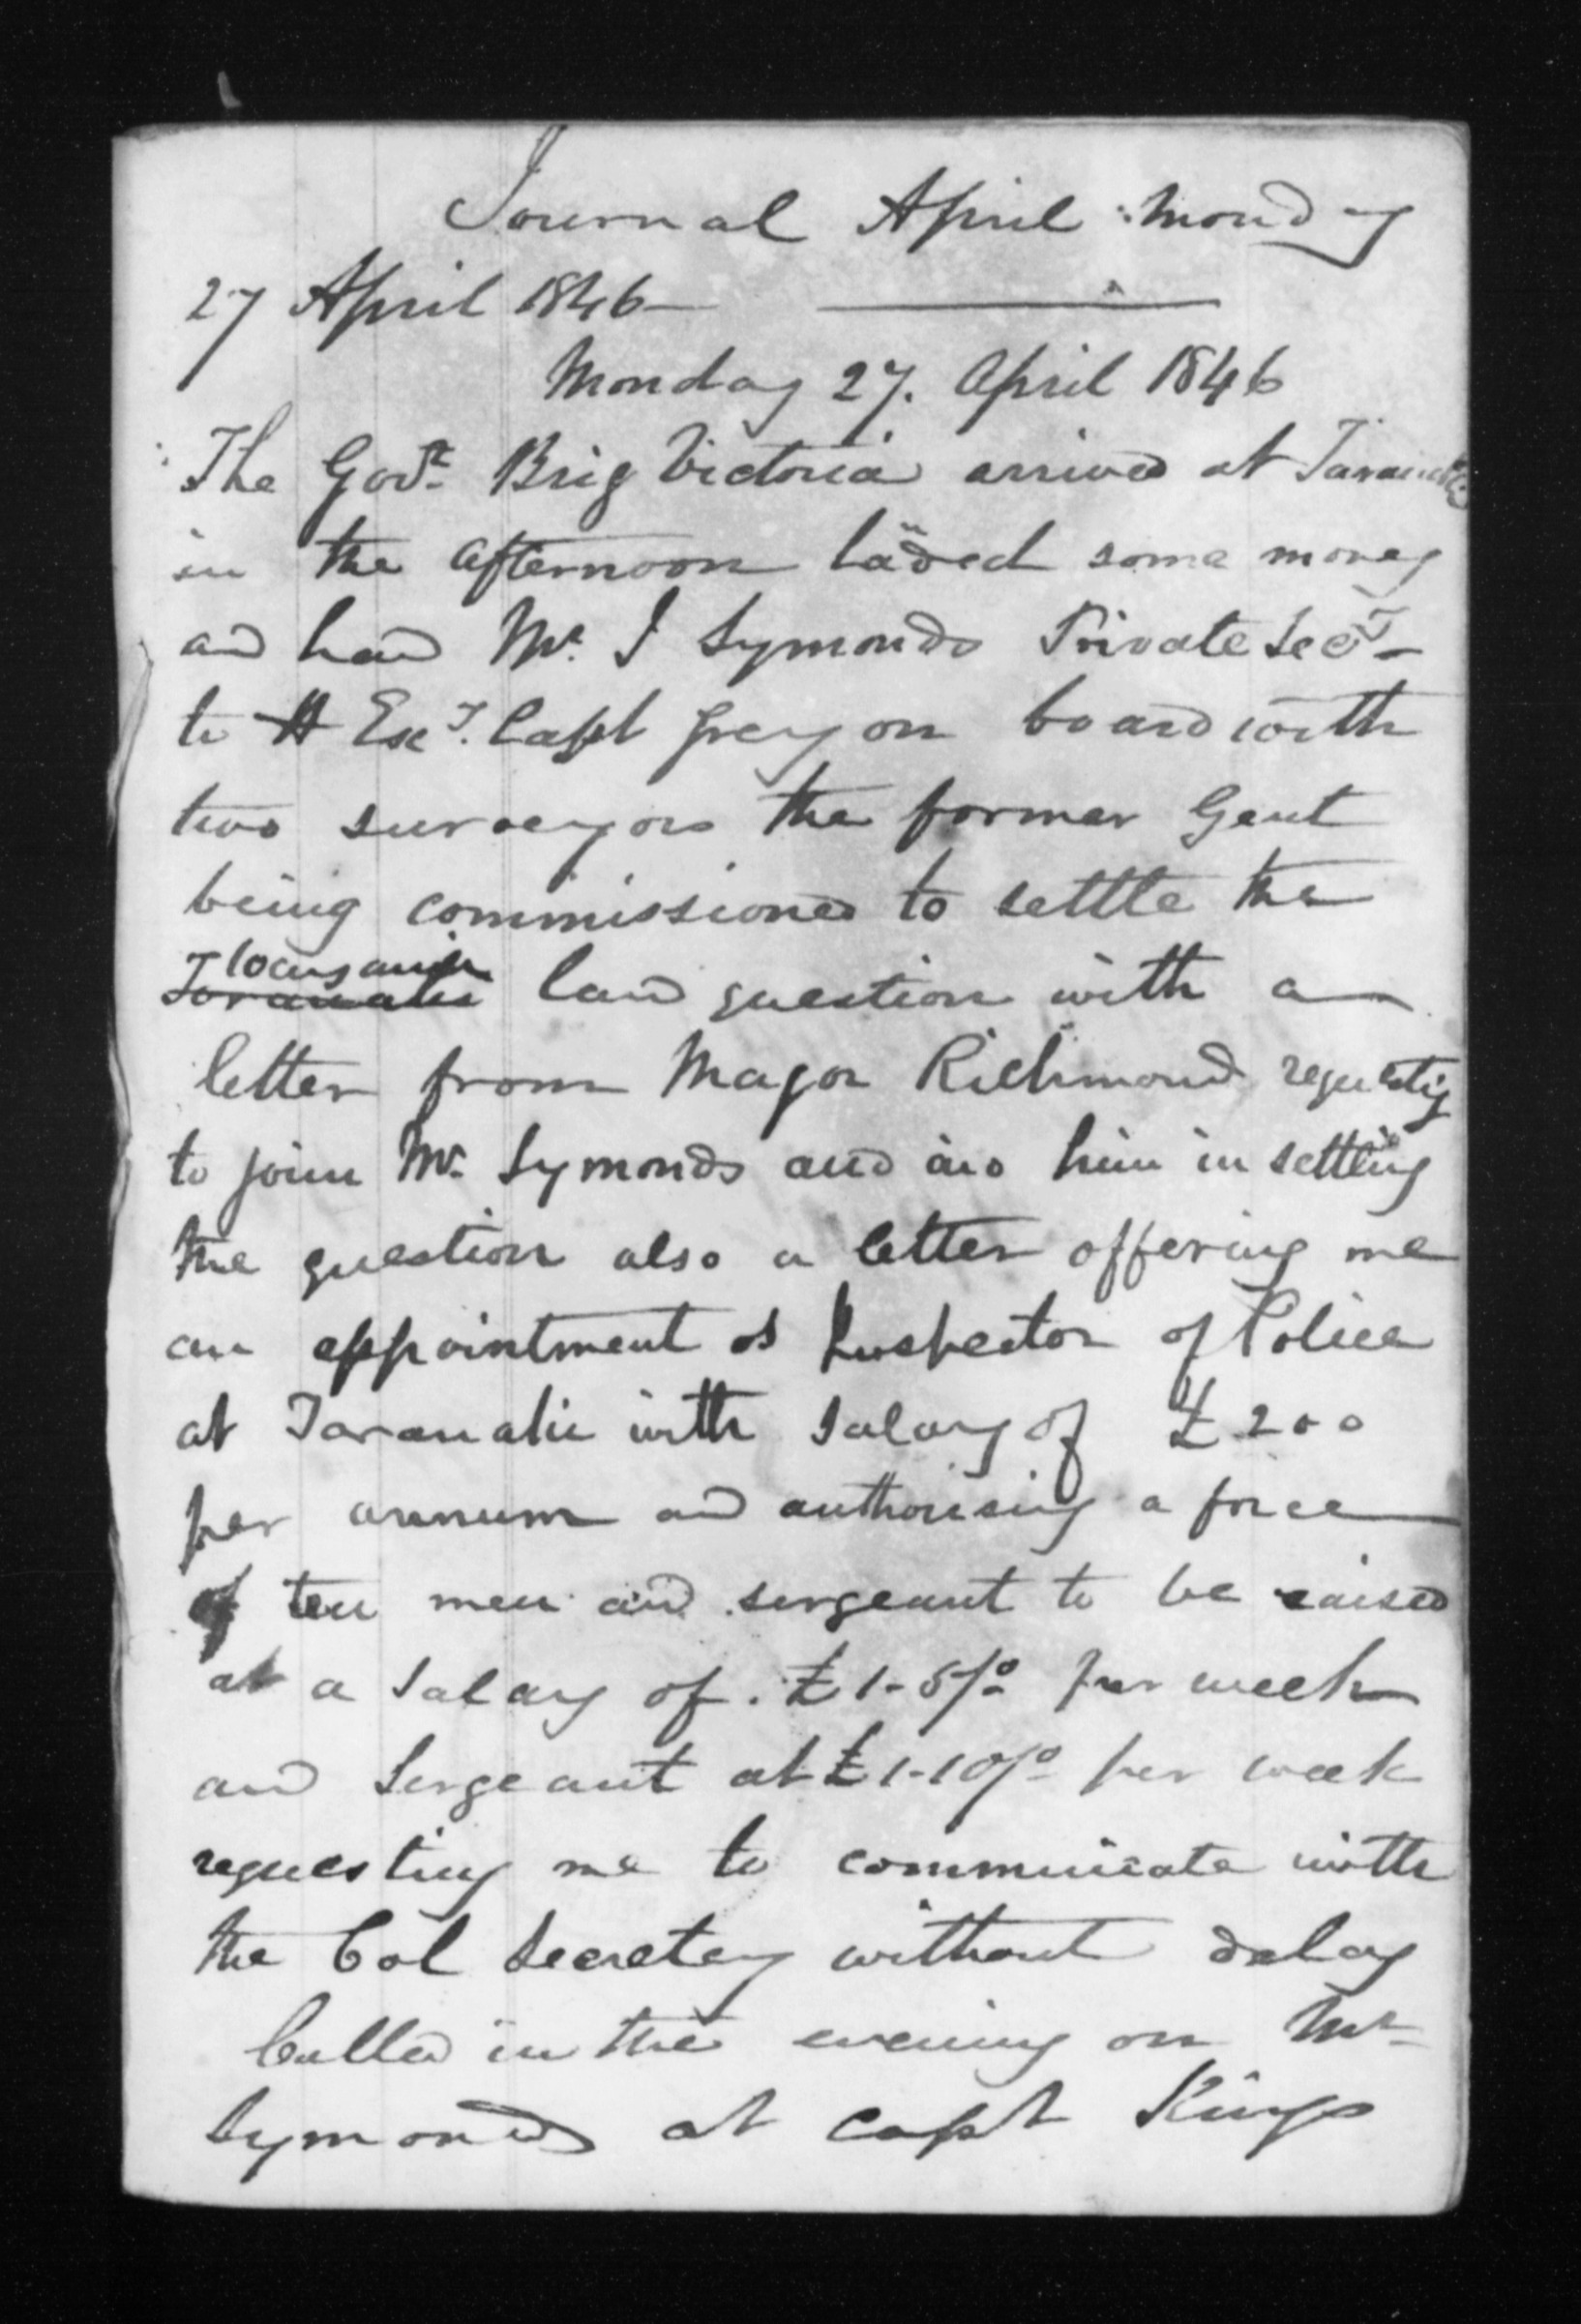 Journal April Monday
27 April 1846
Monday 27. April 1846
The Govt. Brig Victoria arrived at Taranaki
in the afternoon laded some money
and had Mr. J Symonds Private Secy
to H Excy. Capt Grey on board with
two surveyors the former Gent
being commissioned to settle the
Taranakie land question with a
letter from Major Richmond requestig
to join Mr. Symonds and aid him in settling
the question also a letter offering me
an appointment as Inspector of Police
at Taranakie with Salary of £200
per annum and authorising a force
of ten men and sergeant to be raised
at a Salary of £1-5/0 per week
and Sergeant at £1-10/0 per week
requesting me to communicate with
the Col Secretey without delay
Called in the evening on Mr
Symonds at Capt Kings